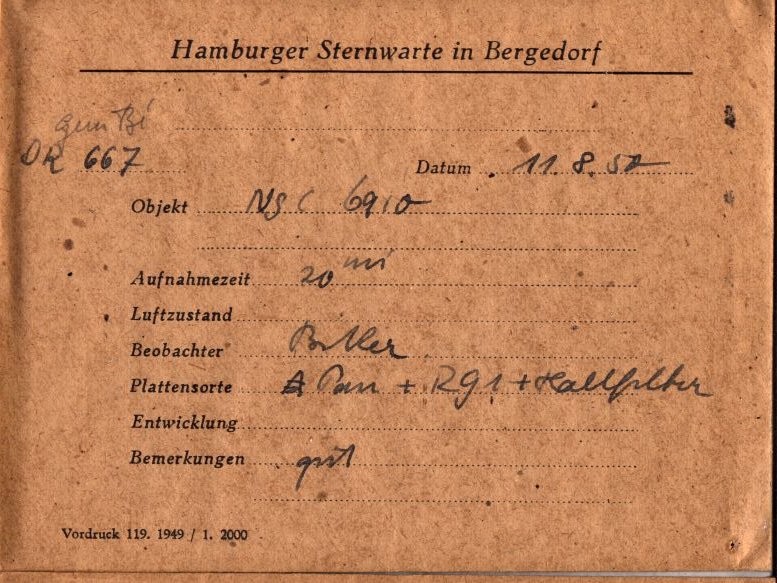 Hamburger Sternwarte in Bergedorf
DR 667 Datum 11.8.50
Objekt NGC 6910
Aufnahmezeit 20 mi
Luftzustand
Beobachter
Plattensorte Pan + RG1 + Hallfilter
Entwicklung
Bemerkungen gut
Vordruck 119. 1949 / 1. 2000